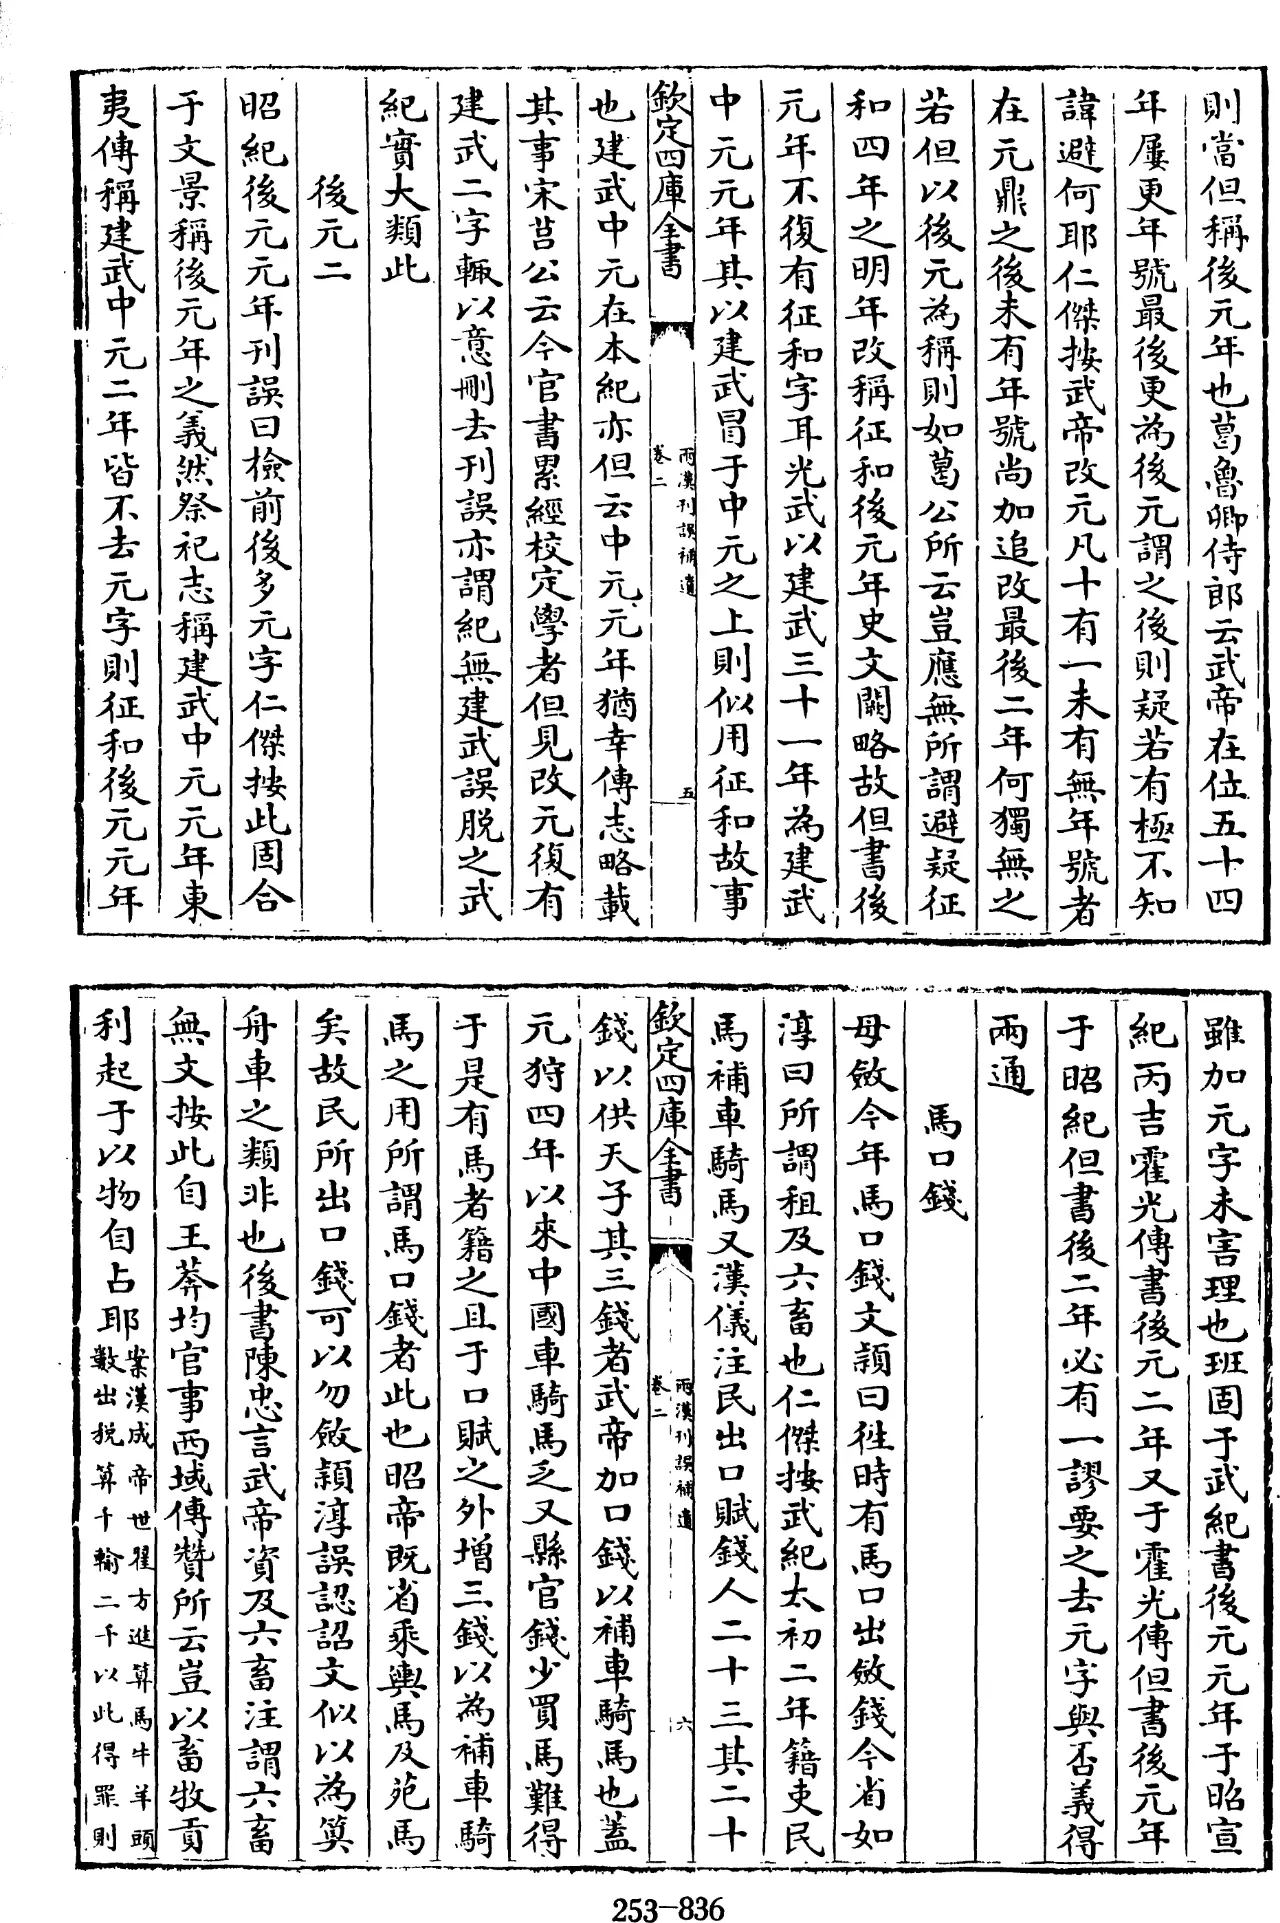 則當但稱後元年也葛魯卿侍郎云武帝在位五十四
年屢更年號最後更為後元謂之後則疑若有極不知
諱避何耶仁傑按武帝改元凡十有一未有無年號者
在元鼎之後未有年號尚加追改最後二年何獨無之
若但以後元為稱則如葛公所云豈應無所謂避疑征
和四年之明年改稱征和後元年史文闕略故但書後
元年不復有征和字耳光武以建武三十一年為建武
中元元年其以建武冒于中元之上則似用征和故事
欽定四庫全書
兩漢刊誤補遺
卷二
五
也建武中元在本紀亦但云中元元年猶幸傳志略載
其事宋莒公云今官書累經校定學者但見改元復有
建武二字輒以意刪去刊誤亦謂紀無建武誤脱之武
紀實大類此
後元二
昭紀後元元年刊誤曰檢前後多元字仁傑按此固合
于文景稱後元年之義然祭祀志稱建武中元元年東
夷傳稱建武中元二年皆不去元字則征和後元元年
雖加元字未害理也班固于武紀書後元元年于昭宣
紀丙吉霍光傳書後元二年又于霍光傳但書後元年
于昭紀但書後二年必有一謬要之去元字與否義得
兩通
馬口錢
母斂今年馬口錢文頴曰徃時有馬口出斂錢今省如
淳曰所謂租及六畜也仁傑按武紀太初二年籍吏民
馬補車騎馬又漢儀注民出口賦錢人二十三其二十
欽定四庫全書
兩漢刊誤補遺
卷二
六
錢以供天子其三錢者武帝加口錢以補車騎馬也蓋
元狩四年以來中國車騎馬乏又縣官錢少買馬難得
于是有馬者籍之且于口賦之外增三錢以為補車騎
馬之用所謂馬口錢者此也昭帝既省乘輿馬及苑馬
矣故民所出口錢可以勿斂頴淳誤認詔文似以為算
舟車之類非也後書陳忠言武帝資及六畜注謂六畜
無文按此自王莽均官事西域傳贊所云豈以畜牧貢
利起于以物自占耶案漢成帝世翟方進算馬牛羊頭
數出税算千輸二千以此得罪則
253-836